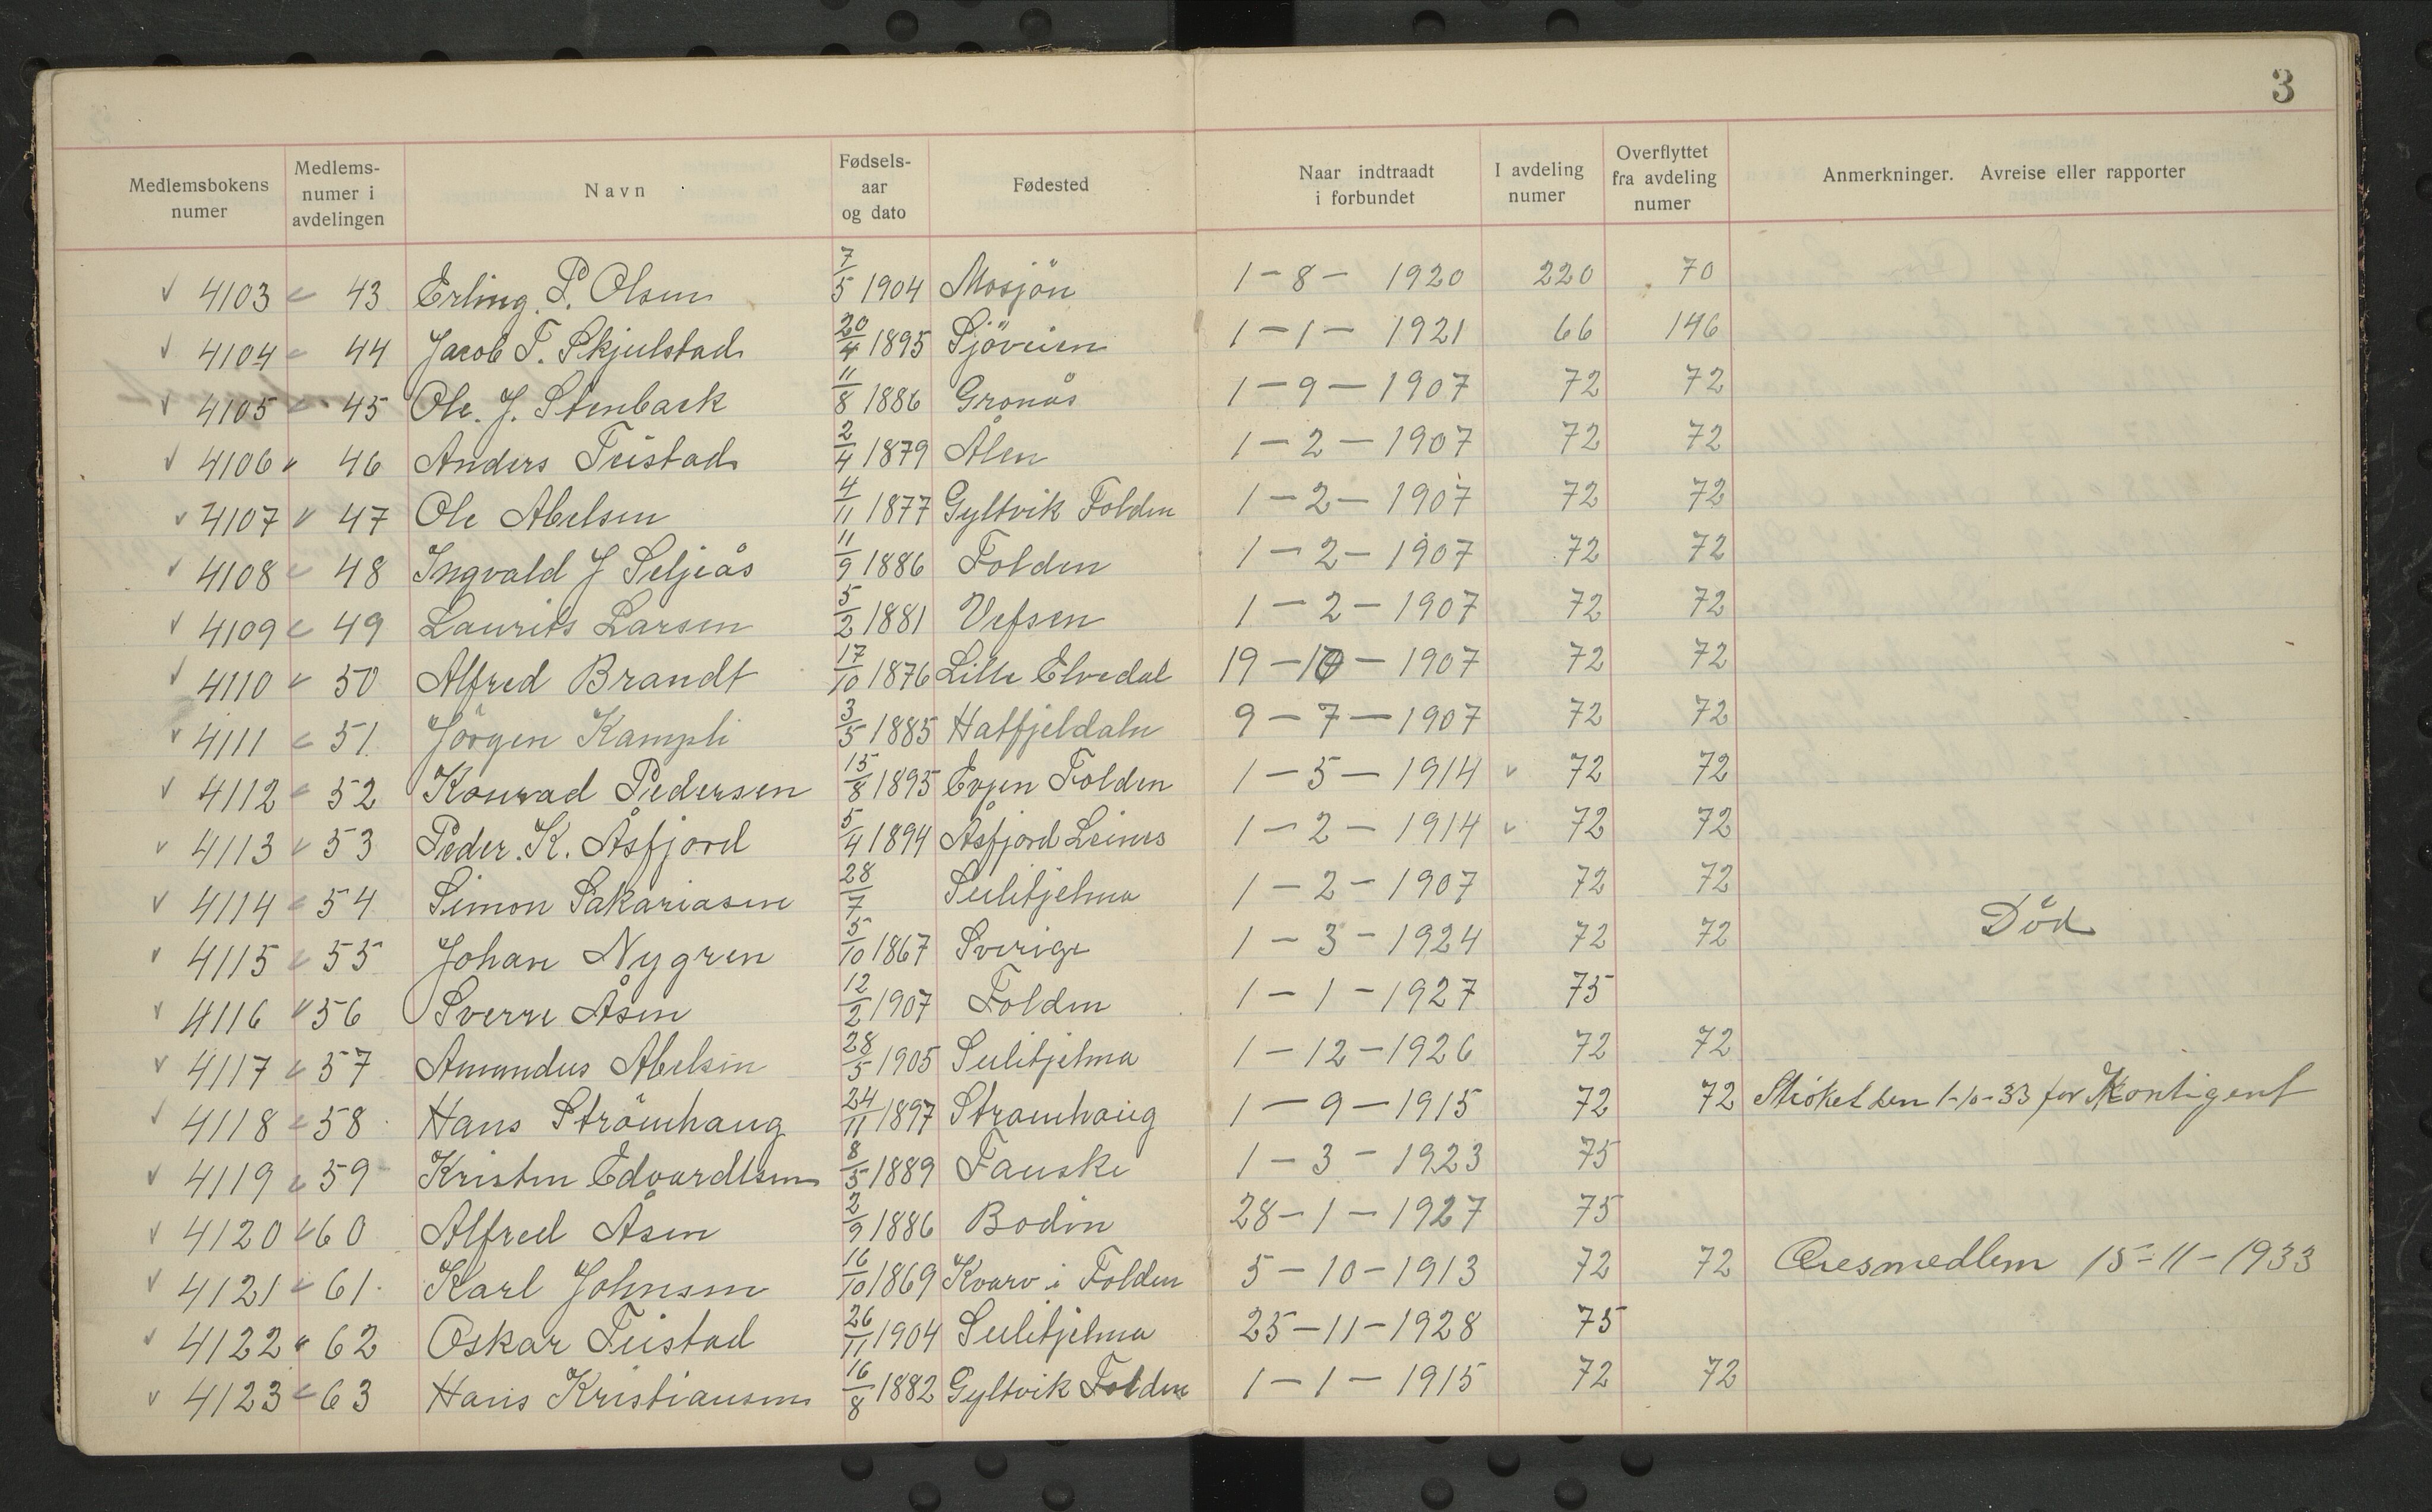 3
Medlemsbokens numer | Medlems-numer i avdelingen | Navn | Fødsels-aar og dato | Fødested | Naar indtraadt i forbundet | I avdeling numer | Overflyttet fra avdeling numer | Anmerkninger. Avreise eller rapporter
4103 43 Erling. P. Olsen 7/5 1904 Mosjön 1-8- 1920 220 70
4104 44 Jacob T. Skjulstad 20/4 1895 Sjöveien 1-1- 1921 66 146
4105 45 Ole. J. Stenback 11/8 1886 Gronås 1-9-1907 72 72
4106 46 Anders Feistad 2/4 1879 Ålen 1-2-1907 72 72
4107 47 Ole Abelsen 4/11 1877 Gyltvik Folden 1-2-1907 72 72
4108 48 Ingvald J Seljeås 11/9 1886 Folden 1-2-1907 72 72
4109 49 Laurits Larsen 5/2 1881 Vefsen 1-2-1907 72 72
4110 50 Alfred Brandt 17/10 1876 Lille Elvedal 19-10-1907 72 72
4111 51 Jörgen Kampli 3/5 1885 Hatfjeldaln 9-7-1907 72 72
4112 52 Konrad Pedersen 15/8 1895 Evjen Folden 1-5-1914 72 72
4113 53 Peder. K. Åsfjord 5/4 1894 Åsfjord Leines 1-2-1914 72 72
4114 54 Simon Sakariasen 28/7 Sulitjelma 1-2-1907 72 72
4115 55 Johan Nygren 5/10 1867 Sverige 1-3-1924 72 72 Död
4116 56 Sverre Åsen 12/2 1907 Folden 1-1-1927 75
4117 57 Amandus Abelsen 28/5 1905 Sulitjelma 1-12-1926 72 72
4118 58 Hans Strömhaug 24/11 1897 Stromhaug 1-9-1915 72 72 Ströket den 1-10-33 for Kontigent
4119 59 Kristen Edvardtsen 8/5 1889 Fauske 1-3-1923 75
4120 60 Alfred Åsen 2/9 1886 Bodin 28-1-1927 75
4121 61 Karl Johnsen 16/10 1869 Kvarv i Folden 5-10-1913 72 72 Æresmedlem 15-11-1933
4122 62 Oskar Feistad 26/11 1904 Sulitjelma 25-11-1928 75
4123 63 Hans Kristiansen 16/8 1882 Gyltvik Folden 1-1-1915 72 72